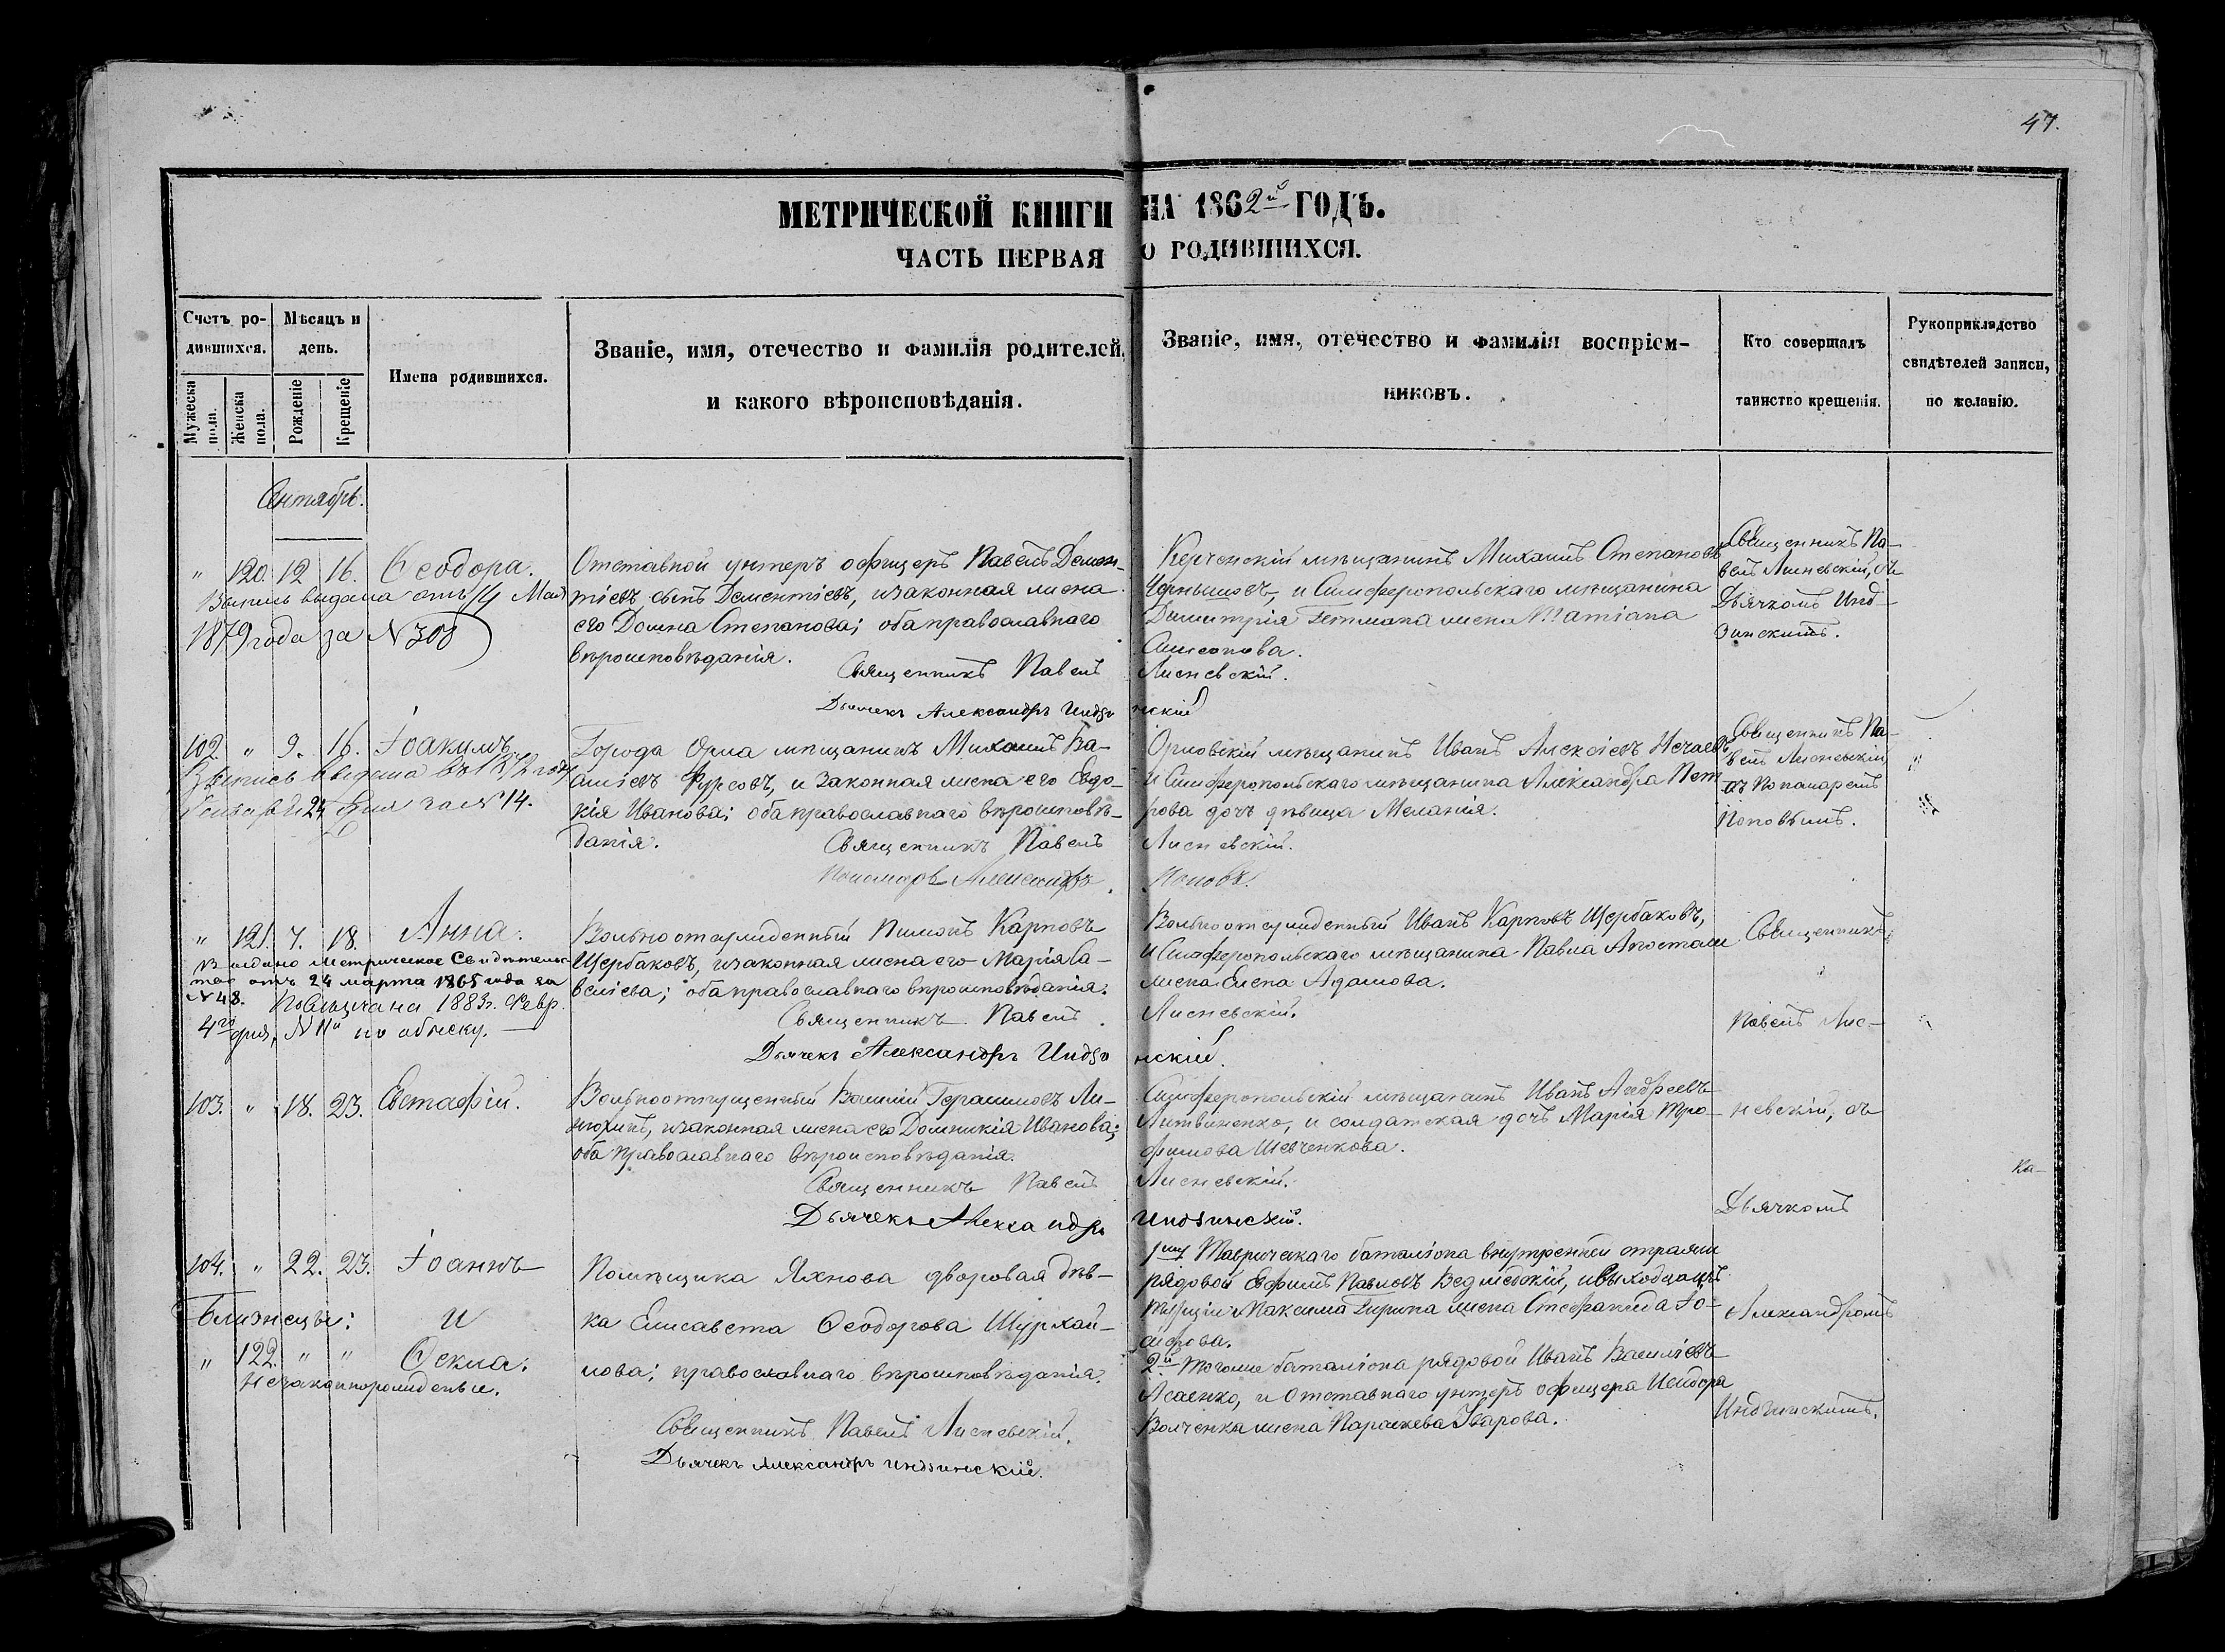 47.
МЕТРИЧЕСКОЙ КНИГИ НА 1862й ГОДЪ.
ЧАСТЬ ПЕРВАЯ О РОДИВШИХСЯ.
Счетъ ро-
дившихся.
Мужеска пола.
Женска пола.
Мѣсяцъ и
день.
Рожденіе
Крещеніе
Имена родившихся.
Званіе, имя, отечество и фамилія родителей,
и какого вѣроисповѣданія.
Званіе, имя, отечество и фамилія воспріем-
никовъ.
Кто совершалъ
таинство крещенія.
Рукоприкладство
свидѣтелей записи,
по желанію.
Сентябрь.
" 120. 12 16. Ѳеодора.
Выпись выдана отъ 14 Мая
1879 года за N 308
Отставной унтеръ офицеръ Павелъ Демен-
тіевъ сынъ Дементіевъ, и законная жена
его Домна Степанова; оба православнаго
вѣроисповѣданія.
Священникъ Павелъ Лисневскій.
Дьячекъ Александръ Индзинскій
Керченскій мѣщанинъ Михаилъ Степановъ
Чернышовъ, и Симферопольскаго мѣщанина
Димитрія Гетмана жена Татіана
Священникъ Па-
велъ Лисневскій, съ
Дьячкомъ Инд-
зинскимъ.
102 " 9. 16. Іоакимъ.
Выпись выдана въ 1872 году
Января 24 дня за N 14.
Города Орла мѣщанинъ Михаилъ Ва-
сильевъ Фурсовъ, и законная жена его Евдо-
кія Иванова; оба православнаго вѣроисповѣ-
данія.
Священникъ Павелъ Лисневскій.
Пономарь Александръ Поповъ.
Орловскій мѣщанинъ Иванъ Алексѣевъ Нечаевъ
и Симферопольскаго мѣщанина Александра Пет-
рова дочь дѣвица Меланія.
Священникъ Па-
велъ Лисневскій,
съ Пономаремъ
Поповымъ.
" 121. 7. 18. Анна.
Выдано Метрическое Свидѣтельс-
тво отъ 24 марта 1865 года за
N 48. Повѣнчана 1883 г. Февр.
4го дня, N 11й по обыску.
Вольноотпущенный Пименъ Карповъ
Щербаковъ, и законная жена его Марія Са-
веліева; оба православнаго вѣроисповѣданія.
Священникъ Павелъ Лисневскій.
Дьячекъ Александръ Индзинскій.
Вольноотпущенный Иванъ Карповъ Щербаковъ,
и Симферопольскаго мѣщанина Павла Апостола
жена Елена Адамова.
Священникъ
Павелъ Лис-
103. " 18. 23. Евстафій.
Вольноотпущенный Василій Герасимовъ
и законная жена его Домникія Иванова;
оба православнаго вѣроисповѣданія.
Священникъ Павелъ Лисневскій.
Дьячекъ Александръ Индзинскій.
Симферопольскій мѣщанинъ Иванъ Андреевъ
Литвиненко, и солдатская дочь Марія Тро-
фимова Шевченкова.
невскій, съ
Дьячкомъ
Ка-
104. " 22. 23. Іоаннъ
Близнецы: и
" 122. " " Ѳекла.
Незаконнорожденые.
Помѣщика Яхнова дворовая дѣв-
ка Елисавета Ѳеодорова
православнаго вѣроисповѣданія.
Священникъ Павелъ Лисневскій.
Дьячекъ Александръ Индзинскій.
Таврическаго баталіона внутренней стражи
рядовой Ефимъ Павловъ Ведмедскій, и выходца изъ
Турціи Максима жена Стефанида
2й Тогоже баталіона рядовой Иванъ Василіевъ
и Отставнаго унтеръ офицера Исидора
Волченка жена Параскева
Александромъ
Индзинскимъ.